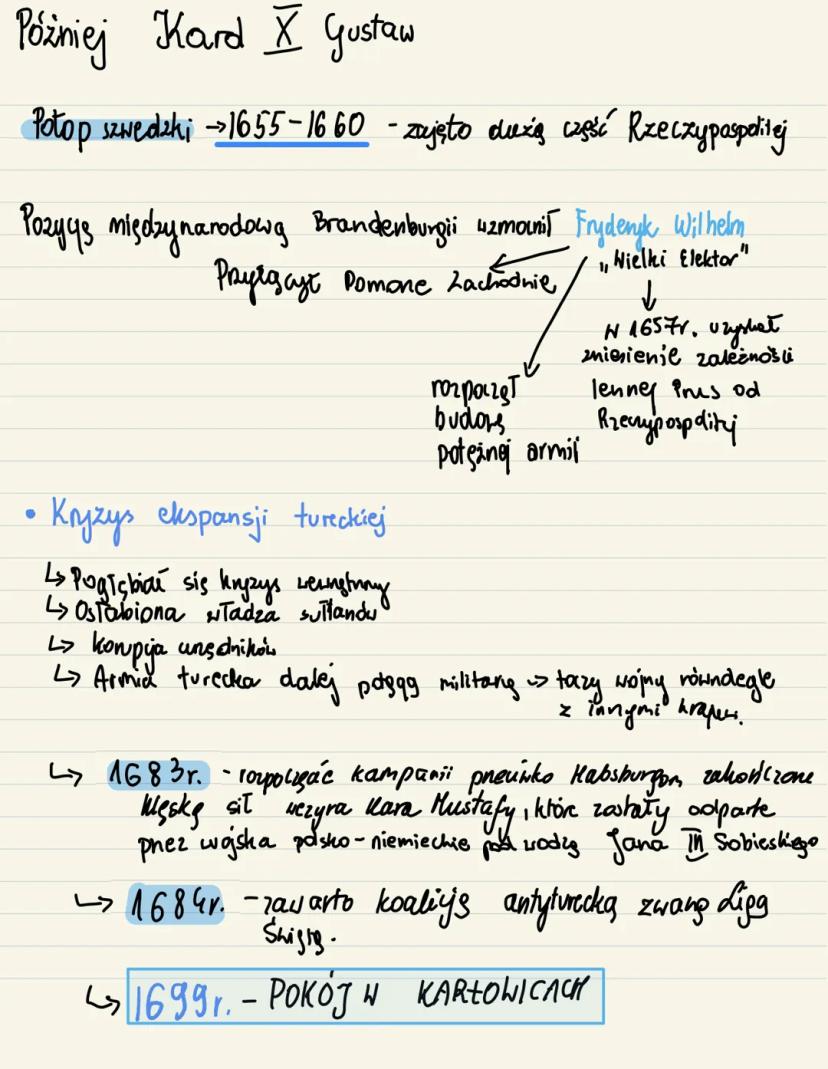 Później Karol X Gustaw
Potop szwedzki → 1655-1660 - zajęto dużą część Rzeczypospolitej
Pozycję międzynarodową Brandenburgii wzmocnił Fryderyk Wilhelm
"Wielki Elektor"
Przyłączył Pomorze Zachodnie
W 1657r. uzyskał
zniesienie zależności
lennej Prus od
Rzeczypospolitej
rozpoczął
budowę
potężnej armii
• Kryzys ekspansji tureckiej
↳ Pogłębiał się kryzys wewnętrzny
↳ Osłabiona władza sułtanów
↳ korupcja urzędników
↳ Armia turecka dalej potęgą militarną → wojny równolegle
z innymi krajami.
↳ 1683r. - rozpoczęć kampanii przeciwko Habsburgom zakończone
klęską sił wezyra Kara Mustafy, które zostały odparte
przez wojska polsko-niemieckie pod wodzą Jana III Sobieskiego
↳ 1684r. - zawarto koalicję antyturecką zwaną Ligą
Świętą.
↳ 1699r. - POKÓJ W KARŁOWICACH